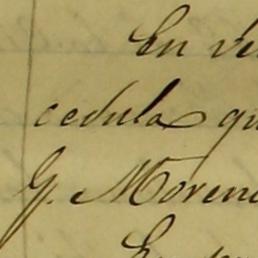 En vi
cedula qu
G. Moren
En